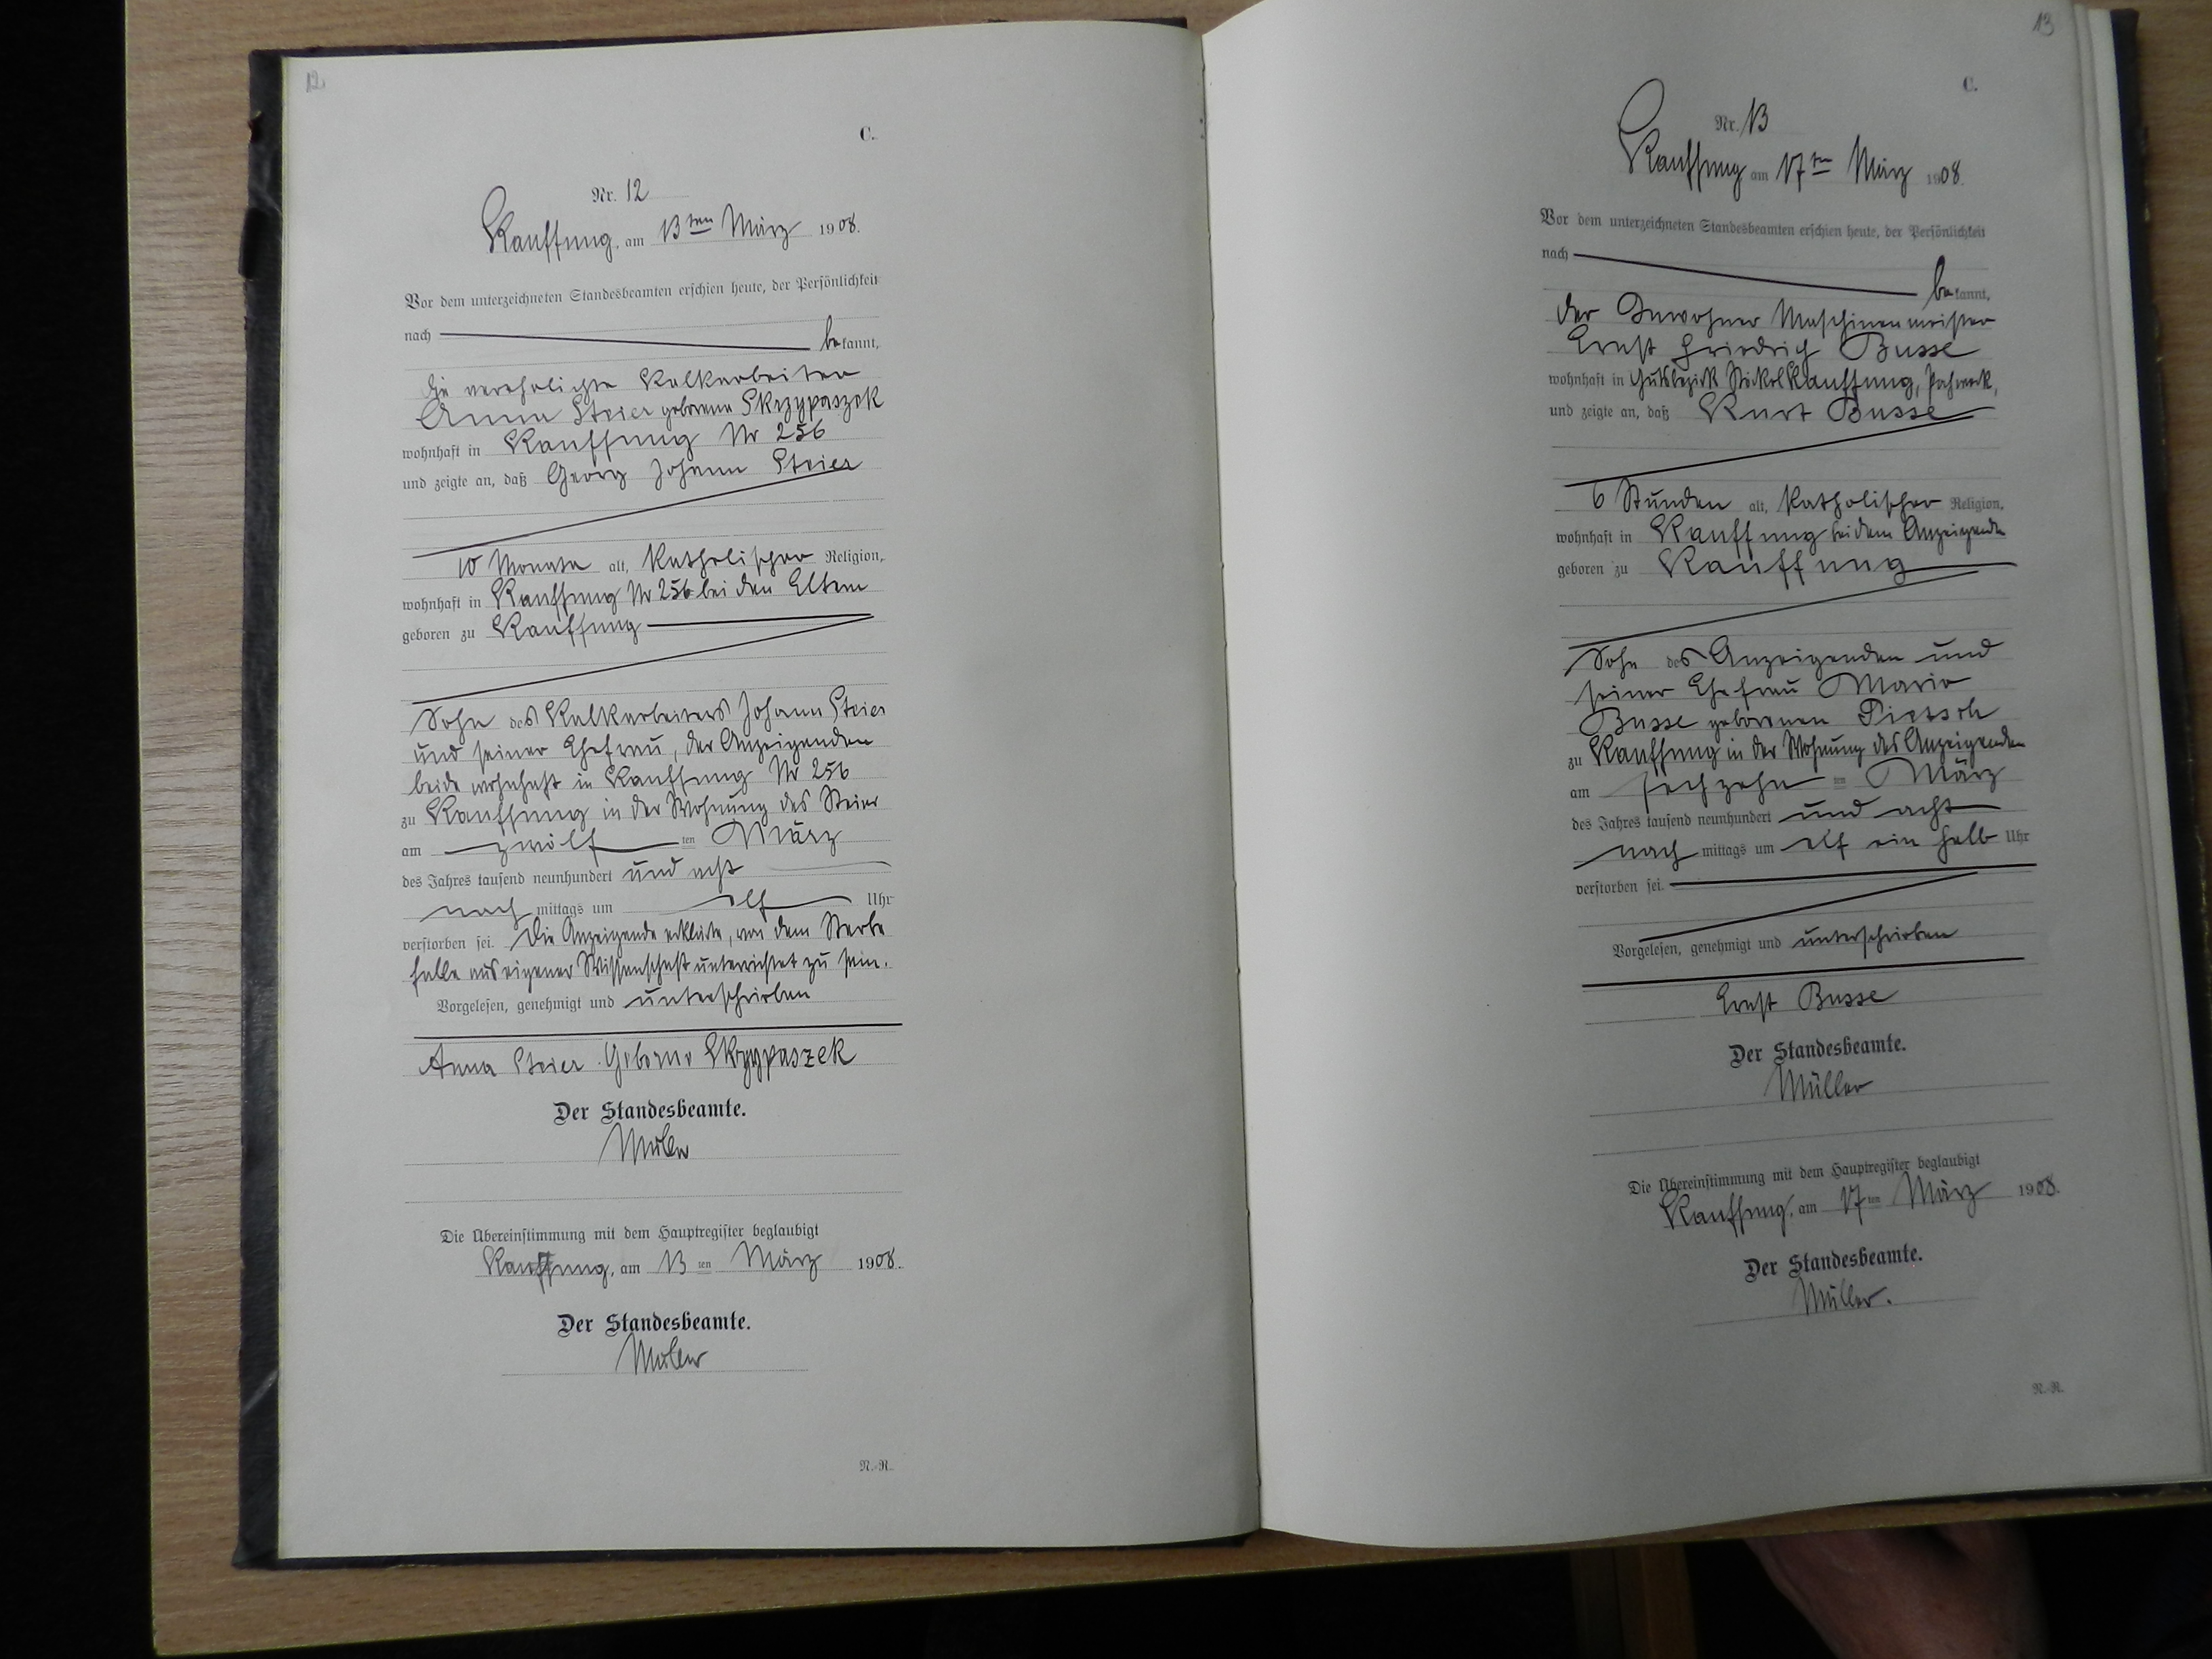 12
C.
Nr. 12
Kauffung, am 13ten März 1908.
Vor dem unterzeichneten Standesbeamten erschien heute, der Persönlichkeit
nach bekannt,
die verehelichte Kalkarbeiter
Anna Steier geborene Skrzypaszek
wohnhaft in Kauffung Nr 256
und zeigte an, daß Georg Johann Steier
10 Monate alt, Katholischer Religion,
wohnhaft in Kauffung Nr 256 bei den Eltern
geboren zu Kauffung
Sohn des Kalkarbeiters Johann Steier
und seiner Ehefrau, der Anzeigenden
beide wohnhaft in Kauffung Nr 256
zu Kauffung in der Wohnung des Steier
am zwölften März
des Jahres tausend neunhundert und acht
nachmittags um elf Uhr
verstorben sei. Die Anzeigende erklärte, von dem Sterbe
falle aus eigener Wissenschaft unterrichtet zu sein.
Vorgelesen, genehmigt und unterschrieben
Anna Steier Geborne Skrzypaszek
Der Standesbeamte.
Müller
Die Übereinstimmung mit dem Hauptregister beglaubigt
Kauffung, am 13ten März 1908.
Der Standesbeamte.
Müller
N.-R.
13
C.
Nr. 13
Kauffung am 17ten März 1908.
Vor dem unterzeichneten Standesbeamten erschien heute, der Persönlichkeit
nach bekannt,
der Inwohner Maschinenmeister
Ernst Friedrich Busse
wohnhaft in Gutsbezirk Stöckel Kauffung,
und zeigte an, daß Kurt Busse
6 Stunden alt, Katholischer Religion,
wohnhaft in Kauffung bei dem Anzeigenden
geboren zu Kauffung
Sohn des Anzeigenden und
seiner Ehefrau Marie
Busse geborenen Pietsch
zu Kauffung in der Wohnung des Anzeigenden
am sechzehnten März
des Jahres tausend neunhundert und acht
nachmittags um elf ein halb Uhr
verstorben sei.
Vorgelesen, genehmigt und unterschrieben
Ernst Busse
Der Standesbeamte.
Müller
Die Übereinstimmung mit dem Hauptregister beglaubigt
Kauffung, am 17ten März 1908.
Der Standesbeamte.
Müller.
N.-R.